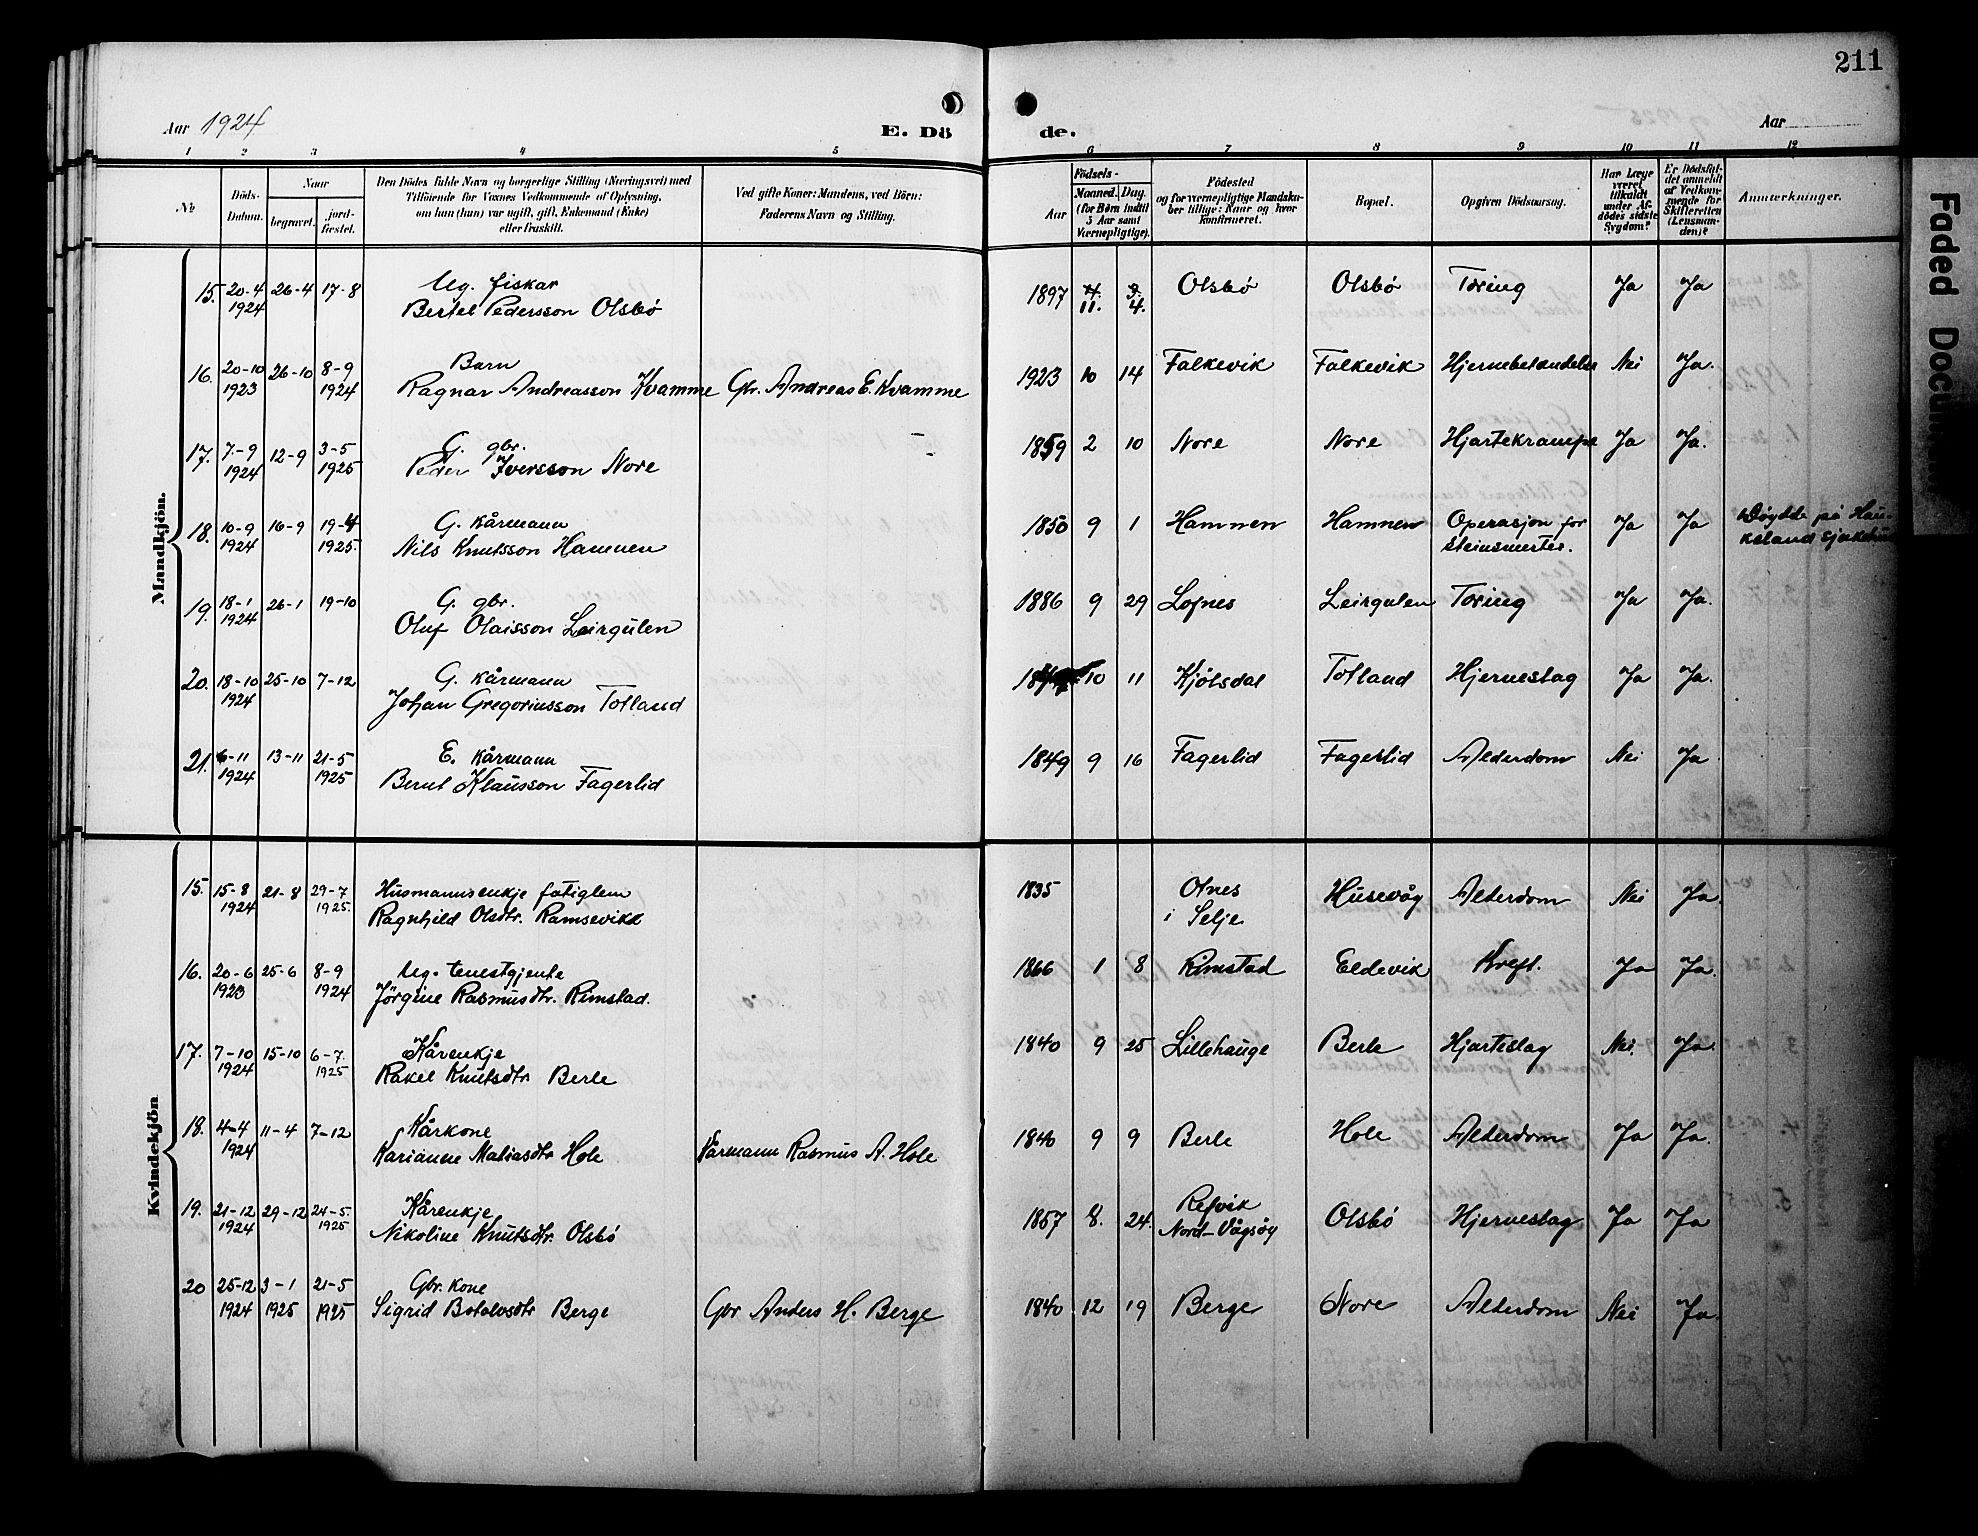 211
Aar 1924
E. Dö
de.
Aar
1 2 3 4 5 6 7 8 9 10 11 12
№
Döds-
Datum.
Naar
begravet.
jord-
fæstet.
Den Dödes fulde Navn og borgerlige Stilling (Næringsvei) med
Tilföiende for Voxnes Vedkommende af Oplysning,
om han (hun) var ugift, gift, Enkemand (Enke)
eller fraskilt.
Ved gifte Koner: Mandens, ved Börn:
Faderens Navn og Stilling.
Födsels-
Aar
Maaned. Dag.
(for Börn indtil
5 Aar samt
Værnepligtige).
Födested
og for værnepligtige Mandsku-
ber tillige: Naar og hvor
konfirmeret.
Bopæl.
Opgiven Dödsaarsag.
Har Læge
været
tilkaldt
under Af-
dödes sidste
Sygdom?
Er Dödsfal-
det anmeldt
af Vedkom-
mende for
Skifteretten
(Lensman-
den)?
Anmærkninger.
Mandkjön.
15. 20-4 1924 26-4 17-8 Ug. fiskar
Bertel Pedersson Olsbö 1897 11. 4. Olsbö Olsbö Tæring Ja Ja
16. 20-10 1923 26-10 8-9 1924 Barn
Ragnar Andreasson Kvamme Gbr. Andreas E. Kvamme 1923 10 14 Falkevik Falkevik Hjernebetændelse Nei Ja.
17. 7-9 1924 12-9 3-5 1925 G. gbr.
Peder Iversson Nore 1859 2 10 Nore Nore Hjartekrampe Ja Ja.
18. 10-9 1924 16-9 19-4 1925. G. kårmann
Nils Knutsson Hamnen 1850 9 1 Hamnen Hamnen Operasjon for
steinsmerter. Ja Ja Döydde på Hau-
keland sjukehus
19. 18-1 1924 26-1 19-10 G. gbr.
Oluf Olaisson Leirgulen 1886 9 29 Lofnes Leirgulen Tæring Ja Ja.
20. 18-10 1924 25-10 7-12 G. kårmann
Johan Gregoriusson Totland 10 11 Kjölsdal Totland Hjerneslag Ja Ja.
21. 6-11 1924 13-11 21-5 1925 E. kårmann
Bernt Klausson Fagerlid 1849 9 16 Fagerlid Fagerlid Alderdom Nei Ja
Kvindekjön
15. 15-8 1924 21-8 29-7 1925. Husmannsenkje fatiglem
Ragnhild Olsdtr. Ramsevikk 1835 Otnes
i Selje Husevåg Alderdom Nei Ja.
16. 20-6 1923 25-6 8-9 1924 Ug. tenestgjente
Jörgine Rasmusdtr. Rimstad. 1866 1 8 Rimstad Eldevik Kreft. Ja Ja.
17. 7-10 1924 15-10 6-7. 1925 Kårenkje
Rakel Knutsdtr Berle 1840 9 25 Lillehauge Berle Hjarteslag Nei. Ja.
18. 4-4 1924 11-4 7-12 Kårkone
Karianne Matiasdtr Hole Kårmann Rasmus A. Hole 1840 9 9 Berle Hole Alderdom Ja Ja.
19. 21-12 1924 29-12 24-5. 1925 Kårenkje
Nikoline Knutsdtr. Olsbö 1857 8. 24. Refvik
Nord-Vågsöy Olsbö Hjerneslag Ja Ja
20 25-12 1924 3-1 1925 21-5 1925 Gbr. kone
Sigrid Botolvsdtr Berge Gbr Anders H. Berge 1840 12 19 Berge Nore Alderdom Nei Ja.
Faded Docum